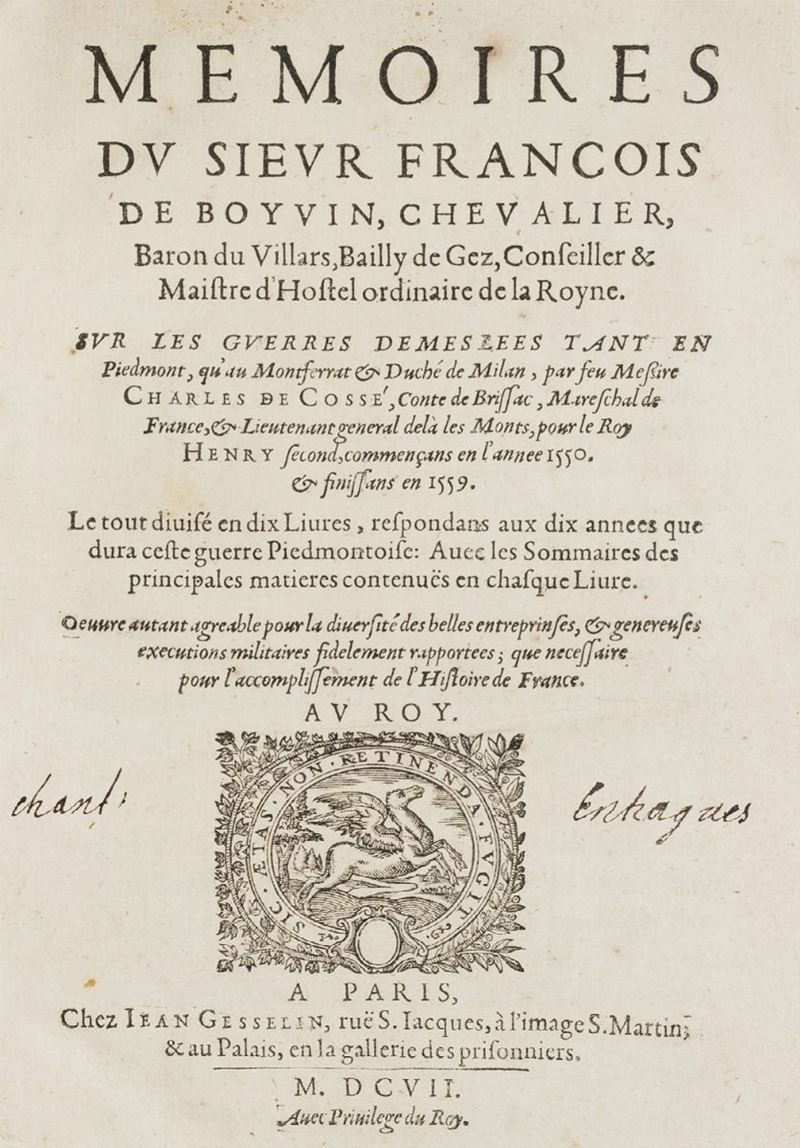 MEMOIRES
DV SIEVR FRANCOIS
DE BOYVIN, CHEVALIER,
Baron du Villars,Bailly de Gez,Conſeiller &
Maiſtre d'Hoſtel ordinaire de la Royne.
SVR LES GVERRES DEMESLEES TANT EN
Piedmont, qu'au Montferrat & Duché de Milan, par feu Meſsire
CHARLES DE COSSE', Conte de Briſſac, Mareſchal de
France,& Lieutenant general delà les Monts,pour le Roy
HENRY ſecond,commençans en l'annee 1550.
& finiſſans en 1559.
Le tout diuiſé en dix Liures, reſpondans aux dix annees que
dura ceſte guerre Piedmontoiſe: Auec les Sommaires des
principales matieres contenuës en chaſque Liure.
Oeuure autant agreable pour la diuerſité des belles entreprinſes, & genereuſes
executions militaires fidelement rapportees; que neceſſaire
pour l'accompliſſement de l'Hiſtoire de France.
AV ROY.
SIC · ÆTAS · NON · RETINENDA · FVGIT
chant'
Enhagues
A PARIS,
Chez IEAN GESSELIN, ruë S. Iacques, à l'image S. Martin;
& au Palais, en la gallerie des priſonniers.
M. DCVII.
Auec Priuilege du Roy.